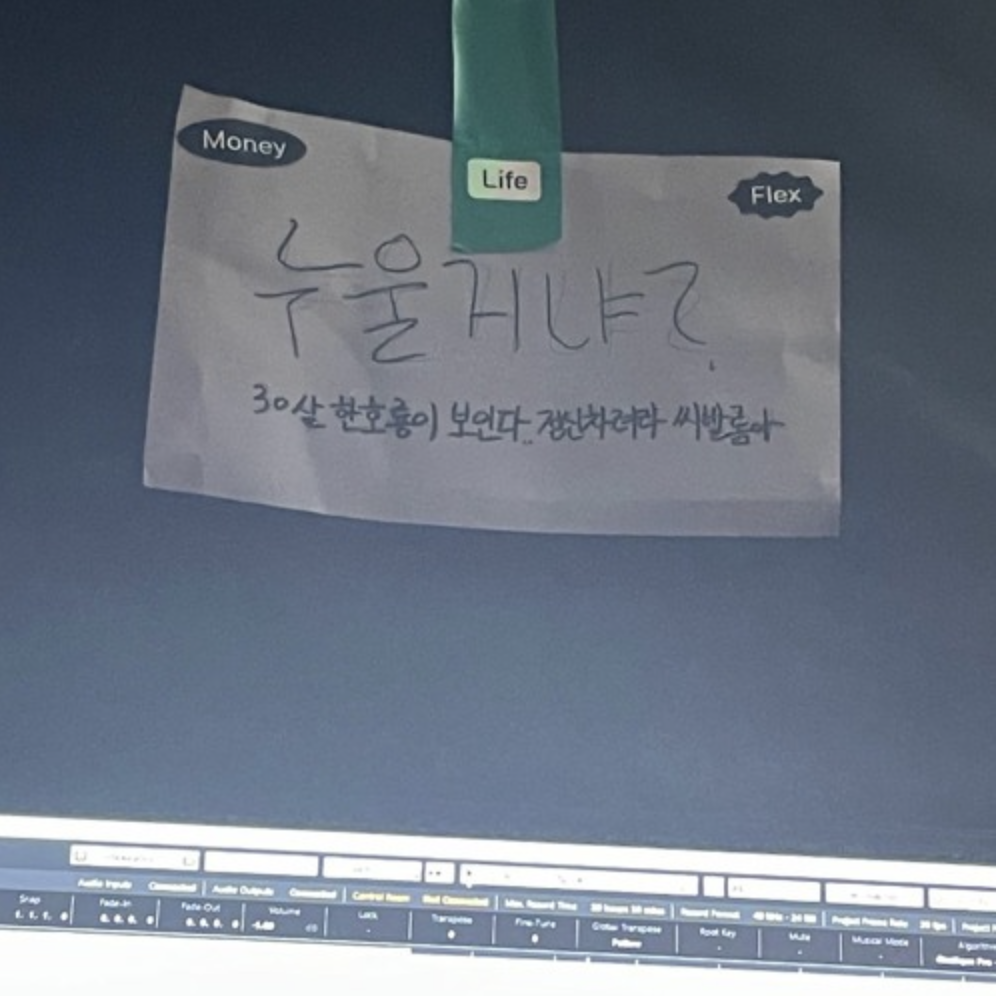 Money
Life
Flex
누울거냐?
30살 한호룡이 보인다.. 정신차려라 씨발롬아
Audio Inputs Connected Audio Outputs Connected Control Room Not Connected Max. Record Time Record Format Project Frame Rate
Snap Fade-In Fade-Out Volume Lock Transpose Fine-Tune Global Transpose Root Key Mute Musical Mode
Follow